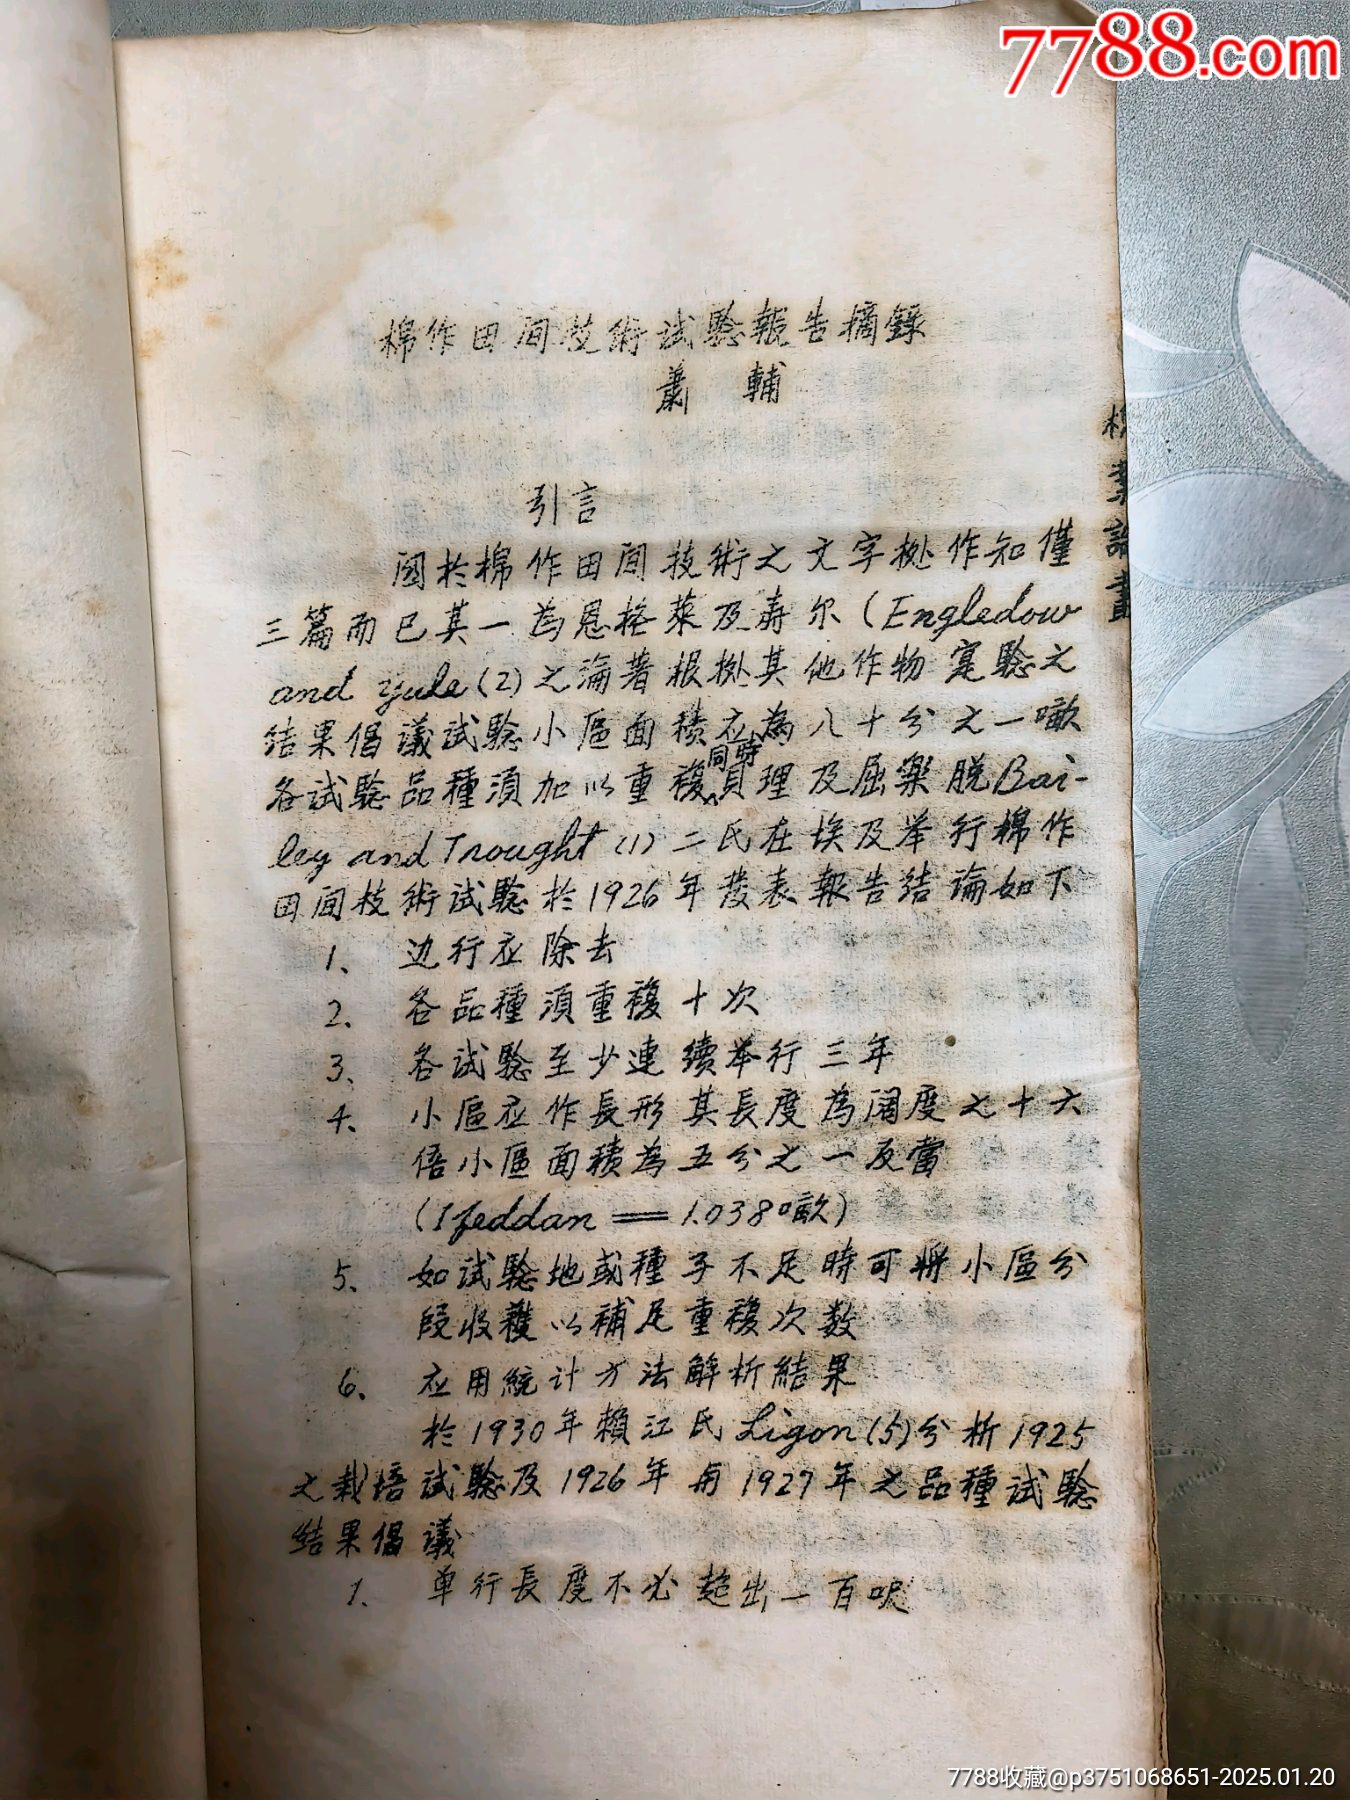 7788.com
棉作田间技術试驗報告摘錄
蕭 輔
引言
関於棉作田间技術之文字㨿作知僅
三篇而已其一為恩格萊及寿尔(Engledow
and yule(2)之論著根㨿其他作物寔驗之
结果倡議试驗小區面積应為八十分之一噉
各试驗品種須加以重複同時貝理及屈樂脱Bai-
ley and Trought(1)二氏在埃及举行棉作
田间技術试驗於1926年发表報告结論如下
1、 边行应除去
2、 各品種須重複十次
3、 各试驗至少連續举行三年
4、 小區应作長形其長度為闊度之十六
倍小區面積為五分之一反當
(1feddan = 1.038噉)
5、 如试驗地或種子不足時可將小區分
段收穫以補足重複次数
6、 应用統计方法解析結果
於1930年賴江氏Ligon(5)分析1925
之栽培试驗及1926年与1927年之品種试驗
结果倡議
1、 单行長度不必超出一百呎
棉業論叢
7788收藏@p3751068651-2025.01.20